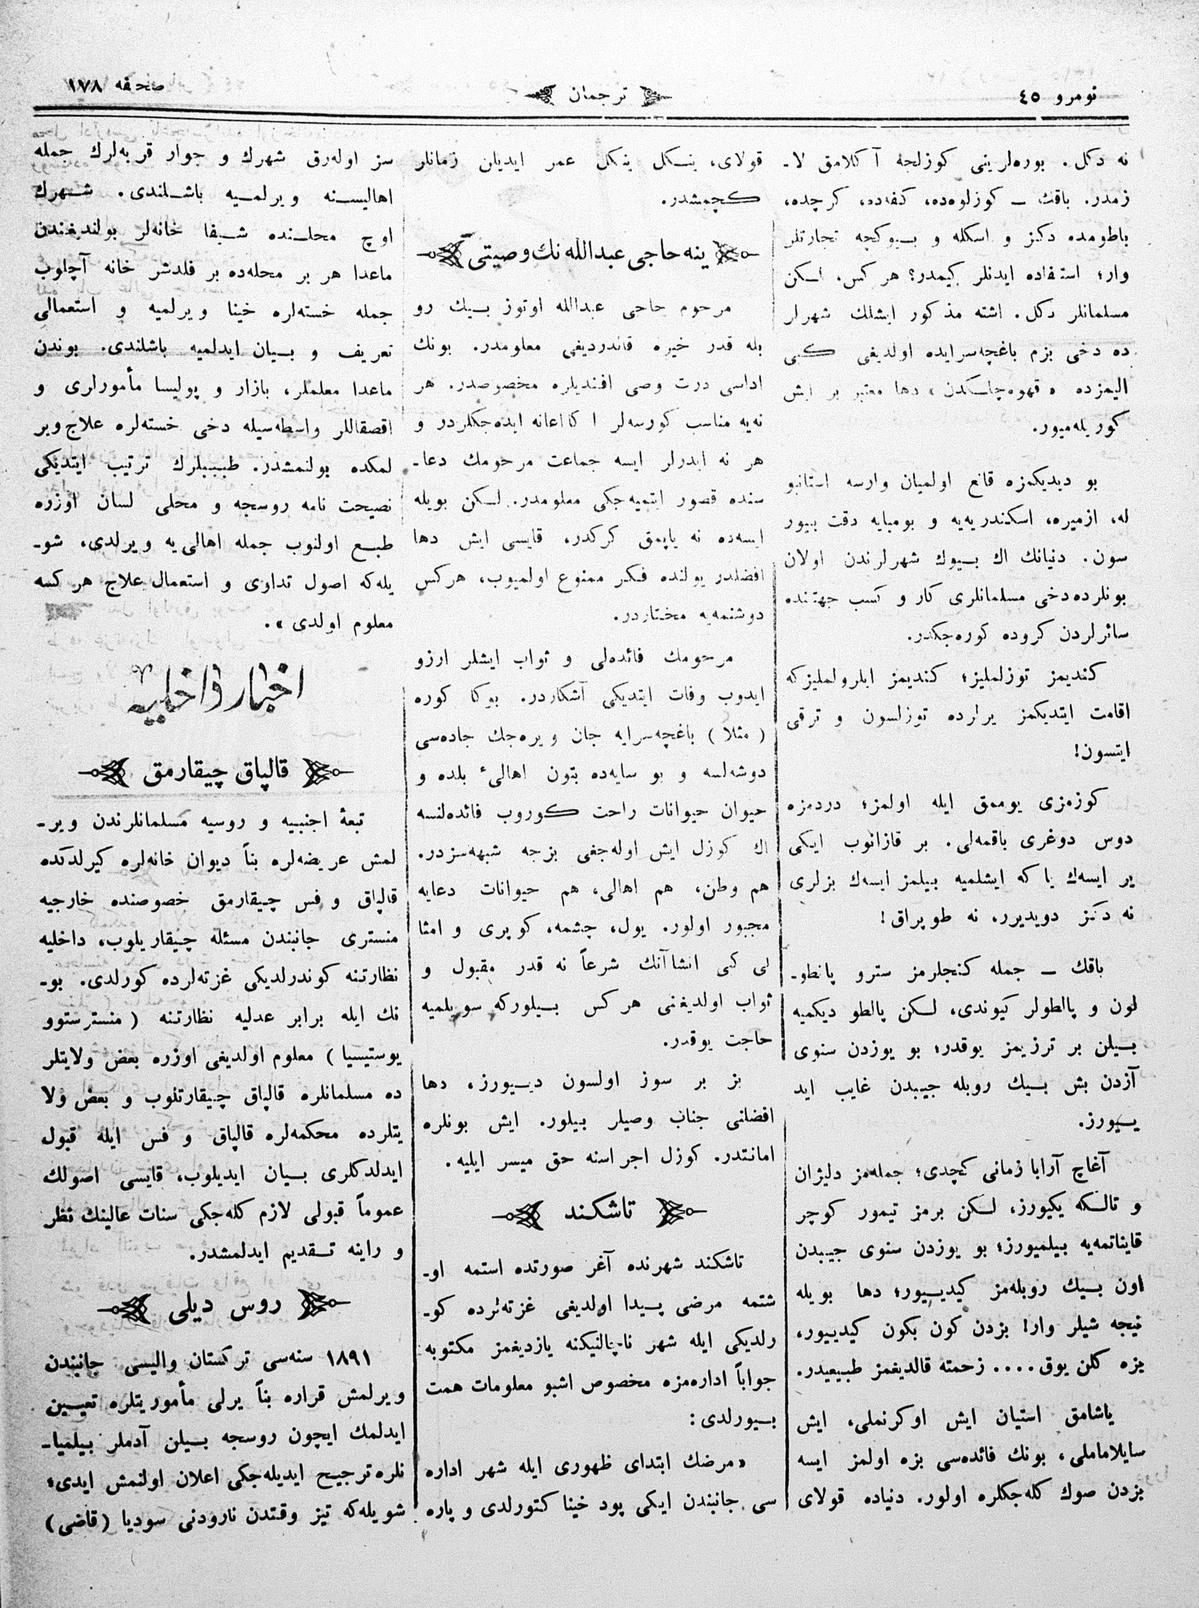 نومرو ٤٥
ترجمان
صحفه ١٧٨
نه دكل. بوره‌لرينى كوزلجه آكلامق لا-
زمدر. باقك — كوزلوه‌ده، كفه‌ده، كرچده،
باطومده دكز و اسكله و بيوكجه تجارتلر
وار؛ استفاده ايدنلر كيمدر؟ هركس. لكن
مسلمانلر دكل. اشته مذكور ايشلك شهرلر
ده دخى بزم باغچه‌سرايده اولديغى كبى
اليمزده «قهوه‌جيلكدن» دها معتبر بر ايش
كوريله‌ميور.
بو ديديكمزه قانع اولميان وارسه استانبو
له، ازميره، اسكندريه‌يه و بومبايه دقت بيور
سون. دنيانك اك بيوك شهرلرندن اولان
بونلرده‌دخى مسلمانلرى كار و كسب جهتنده
سائرلردن كروده كوره‌جكدر.
كنديمز توزلمليز؛ كنديمز ايلرولمليزكه
اقامت ايتديكمز يرلرده توزلسون و ترقى
ايتسون!
كوزمزى يوممق ايله اولمز؛ دردمزه
دوس دوغرى باقمه‌لى. بر قازانوب ايكى
ير ايسه‌ك ياكه ايشلميه بيلمز ايسه‌ك بزلرى
نه دكز دويديرر، نه طوپراق!
باقك — جمله كنجلرمز سترو پانطو-
لون و پالطولر كيوندى، لكن پالطو ديكميه
بيلن بر ترزيمز يوقدر؛ بو يوزدن سنوى
آزدن بش بيك روبله جيبدن غايب ايد
يورز.
آغاچ آرابا زمانى كچدى؛ جمله‌مز دليژان
و تالكه يكيورز، لكن برمز تيمور كوچر
قايناتمه‌يه بيلميورز؛ بو يوزدن سنوى جيبدن
اون بيك روبله‌مز كيديور؛ دها بويله
نيجه شيلر وار! بزدن كون بكون كيديور،
بزه كلن يوق.... زحمته قالديغمز طبيعيدر.
ياشامق استيان ايش اوكرنملى، ايش
سايلاماملى، بونك فائده‌سى بزه اولمز ايسه
بزدن صوك كله‌جكلره اولور. دنياده قولاى
قولاى، ينكل ينكل عمر ايديلن زمانلر
كچمشدر.
ينه حاجى عبدالله نك وصيتى
مرحوم حاجى عبدالله اوتوز بيك رو
بله قدر خيره قالديرديغى معلومدر. بونك
اداسى درت وصى افنديلره مخصوصدر. هر
نه‌يه مناسب كورسه‌لر اكا اعانه ايده‌جكلردر و
هر نه ايدرلر ايسه جماعت مرحومك دعا-
سنده قصور ايتميه‌جكى معلومدر. لكن بويله
ايسه‌ده نه ياپمق كركدر، قايسى ايش دها
افضلدر يولنده فكر ممنوع اولميوب، هركس
دوشنمه‌يه مختاردر.
مرحومك فائده‌لى و ثواب ايشلر ارزو
ايدوب وفات ايتديكى آشكاردر. بوكا كوره
(مثلا) باغچه‌سرايه جان ويره‌جك جاده‌سى
دوشه‌لسه و بو سايه‌ده بتون اهالىٔ بلده و
حيوان حيوانات راحت كوروب فائده‌لنسه
اك كوزل ايش اوله‌جغى بزجه شبهه‌سزدر.
هم وطن، هم اهالى، هم حيوانات دعايه
مجبور اولور. يول، چشمه، كوپرى و امثا
لى كبى انشاآتك شرعاً نه قدر مقبول و
ثواب اولديغنى هركس بيلوركه سويلميه
حاجت يوقدر.
بز بر سوز اولسون ديورز، دها
افضلنى جناب وصيلر بيلور. ايش بونلره
امانتدر. كوزل اجراسنه حق ميسر ايليه.
تاشكند
تاشكند شهرنده آغر صورتده استمه او-
شتمه مرضى پيدا اولديغى غزته‌لرده كو-
رلديكى ايله شهر ناچالنيكنه يازديغمز مكتوبه
جواباً اداره‌مزه مخصوص اشبو معلومات همت
بيورلدى:
«مرضك ابتداى ظهورى ايله شهر اداره
سى جانبندن ايكى پود خينا كتورلدى و پاره
سز اوله‌رق شهرك و جوار قريه‌لرك جمله
اهاليسنه ويرلميه باشلندى. شهرك
اوچ محلنده شفا خانه‌لر بولنديغندن
ماعدا هر بر محله‌ده بر فلدشر خانه آچلوب
جمله خسته‌لره خينا ويرلميه و استعمالى
تعريف و بيان ايدلميه باشلندى. بوندن
ماعدا معلملر، بازار و پوليسا مأمورلرى و
اقصقاللر واسطه‌سيله دخى خسته‌لره علاج وير
لمكده بولنمشدر. طبيبلرك ترتيب ايتديكى
نصيحت نامه روسجه و محلى لسان اوزره
طبع اولنوب جمله اهالى‌يه ويرلدى، شو-
يله‌كه اصول تداوى و استعمال علاج هركسه
معلوم اولدى».
اخبار داخليه
قالپاق چيقارمق
تبعهٔ اجنبيه و روسيه مسلمانلرندن وير-
لمش عريضه‌لره بناً ديوان خانه‌لره كيرلدكده
قالپاق و فس چيقارمق خصوصنده خارجيه
منسترى جانبندن مسئله چيقاريلوب، داخليه
نظارتنه كوندرلديكى غزته‌لرده كورلدى. بو-
نك ايله برابر عدليه نظارتنه (منسترستوو
يوستيسيا) معلوم اولديغى اوزره بعض ولايتلر
ده مسلمانلره قالپاق چيقارتلوب و بعض ولا
يتلرده محكمه‌لره قالپاق و فس ايله قبول
ايدلدكلرى بيان ايديلوب، قايسى اصولك
عموماً قبولى لازم كله‌جكى سنات عالينك نظر
و راينه تقديم ايدلمشدر.
روس ديلى
١٨٩١ سنه‌سى تركستان واليسى جانبندن
ويرلمش قراره بناً يرلى مأموريتلره تعيين
ايدلمك ايچون روسجه بيلن آدملر بيلميا-
نلره ترجيح ايديله‌جكى اعلان اولنمش ايدى؛
شويله‌كه تيز وقتدن نارودنى سوديا (قاضى)